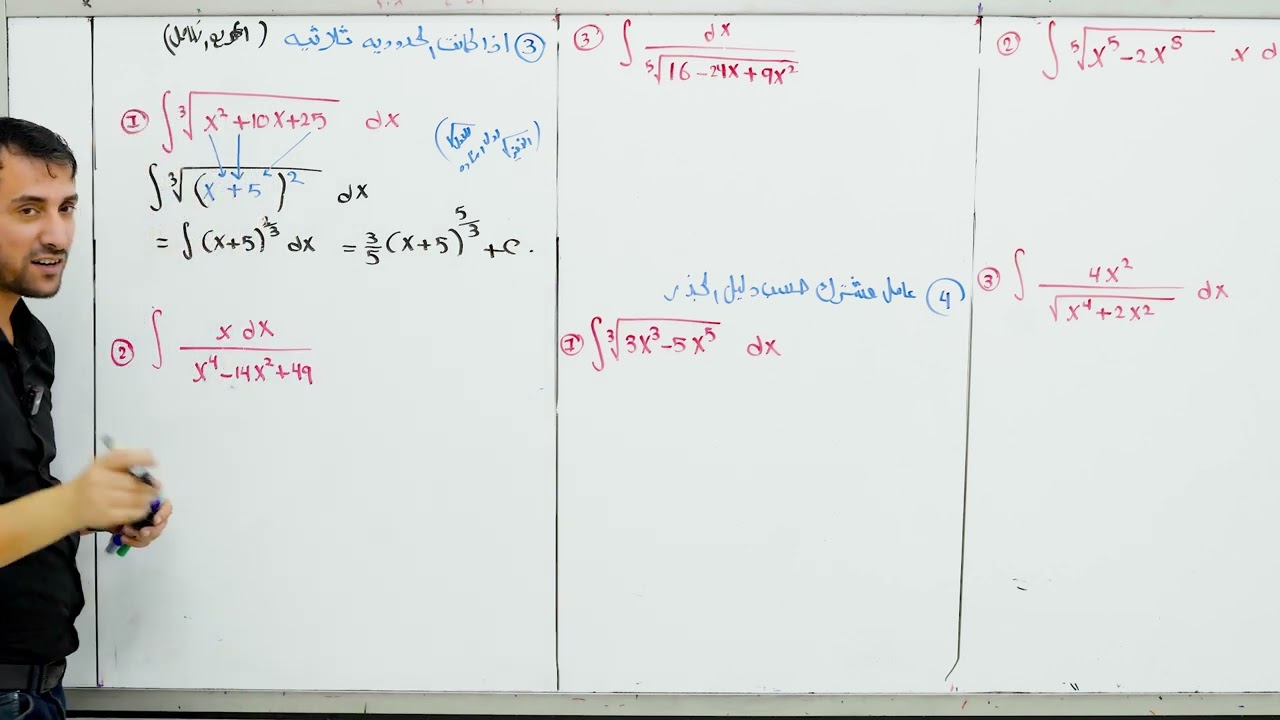 ③ اذا كانت الحدوديه ثلاثيه (مربع كامل)
① ∫ ∛(x² + 10x + 25) dx
∫ ∛((x + 5)²) dx
= ∫ (x+5)^(2/3) dx = 3/5 (x+5)^(5/3) + C .
② ∫ x dx / (x⁴ - 14x² + 49)
③ ∫ dx / ⁵√(16 - 24x + 9x²)
④ عامل مشترك حسب دليل الجذر
① ∫ ∛(3x³ - 5x⁵) dx
② ∫ ⁵√(x⁵ - 2x⁸) x d
③ ∫ 4x² / √(x⁴ + 2x²) dx